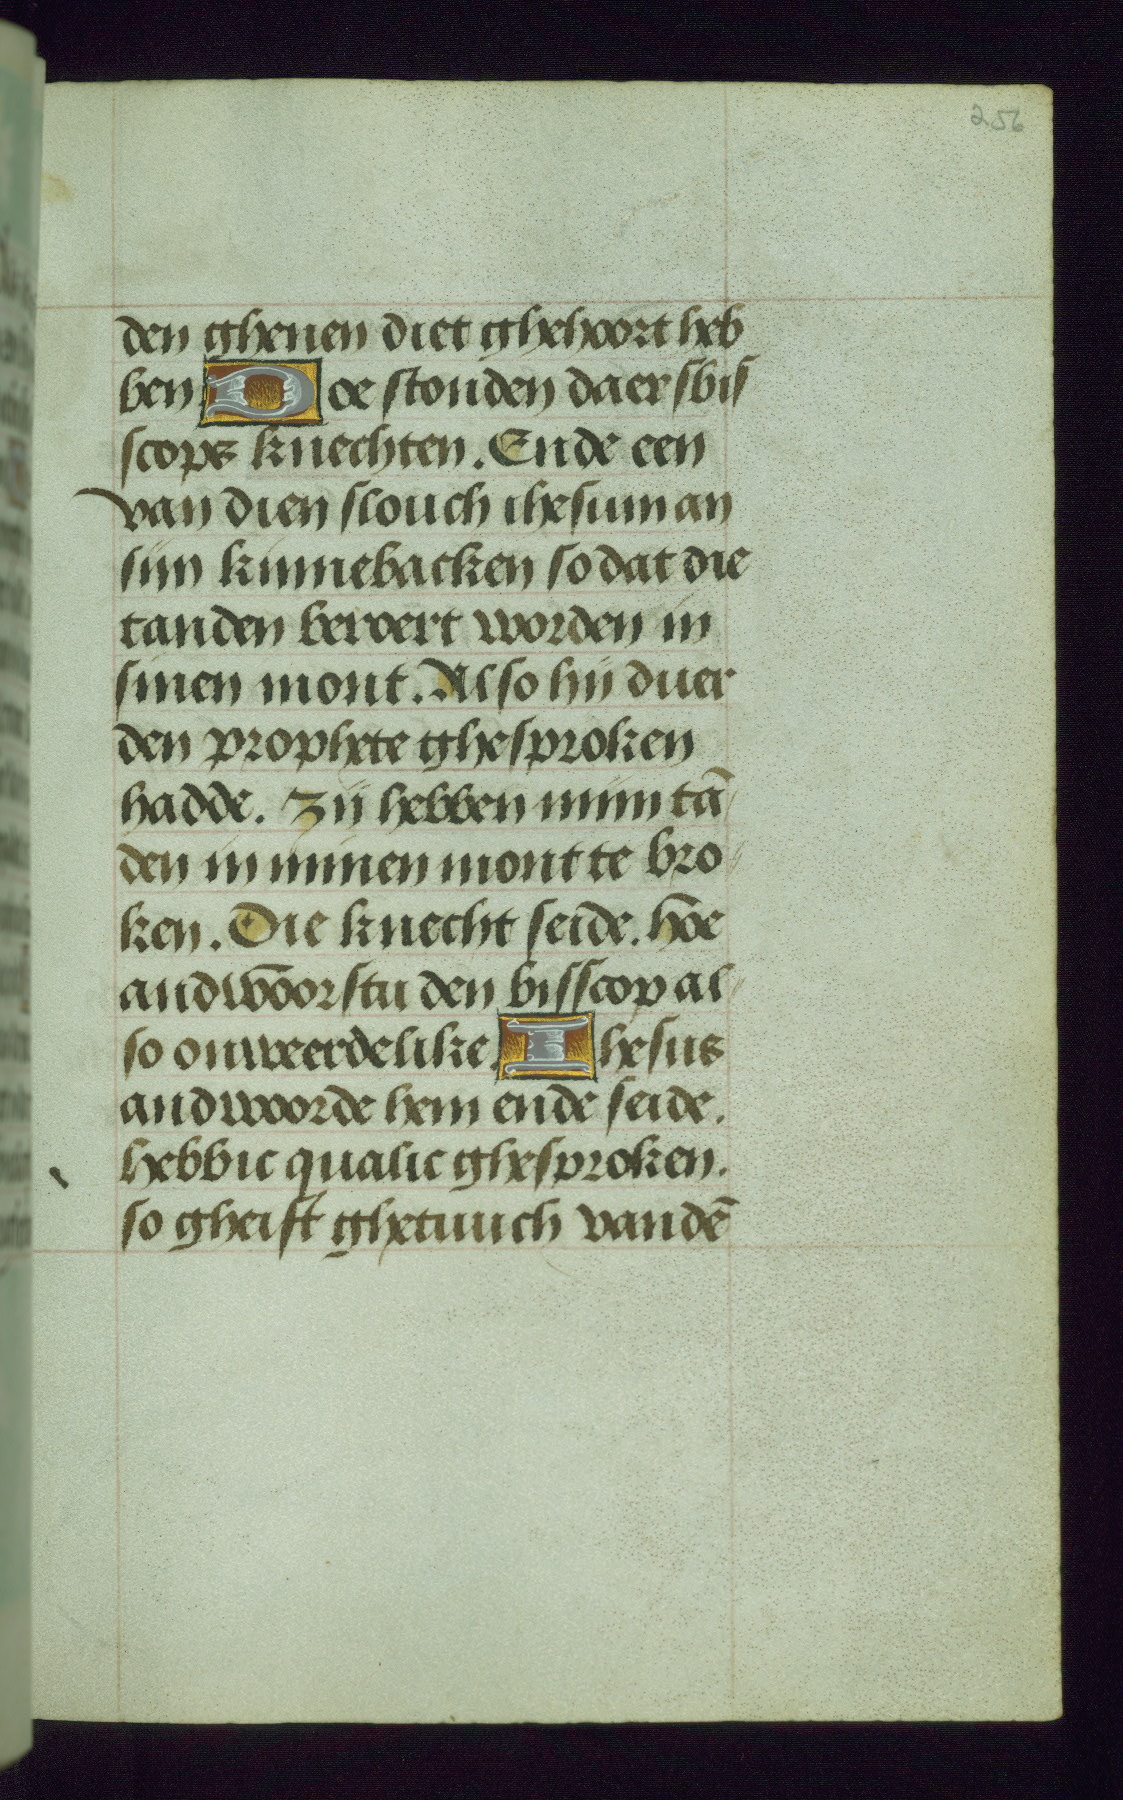 256
den ghenen diet ghehoort heb
ben Doe stonden daer sbis
scops knechten. Ende een
van dien slouch ihesum an
sijn kinnebacken so dat die
tanden beroert worden in
sinen mont. Also hij duer
den prophete ghesproken
hadde. Zij hebben mijn tā
den in minen mont te bro
ken. Die knecht seide. hoe
andwoorstu den bisscop al
so onweerdelike. Ihesus
andwoorde hem ende seide.
hebbic qualic ghesproken.
so gheift ghetuuch vandē